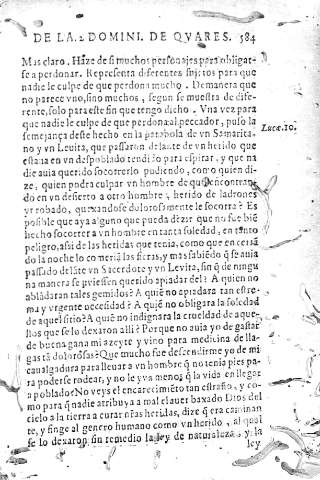 DE LA 2 DOMINI. DE QVARES. 584
Mas claro. Haze de si muchos personajes para obligarse
a perdonar. Representa diferentes sujetos para que
nadie le culpe de que perdona mucho. De manera que
no parece vno, sino muchos, segun se muestra de diferente,
solo para este fin que tengo dicho. Vna vez para
que nadie le culpe de que perdona al peccador, puso la
semejança deste hecho en la parabola de vn Samaritano
y vn Levita, que passaron delante de vn herido que
Lucæ. 10.
estaua en vn despoblado tendido para espirar, y que nadie
auia querido socorrerlo pudiendo, como quien dize,
quien podra culpar vn hombre de que encontrando
en vn desierto a otro hombre, herido de ladrones
y robado, quexandose dolorosamente le socorra? Es
possible que aya alguno que pueda dezir que no fue biē
hecho socorrer a vn hombre en tanta soledad, en tanto
peligro, assi de las heridas que tenia, como que en cerrādo
la noche lo comeriā las fieras, y mas sabiēdo q̄ se auia
passado delāte vn Sacerdote y vn Levita, sin q̄ de ninguna
manera se uviessen querido apiadar del? A quien no
ablādaran tales gemidos? A quiē no apiadara tan estrema
y vrgente necessidad? A quiē no obligara la soledad
de aquel sitio? A quiē no indignara la crueldad de aquellos
que se lo dexaron alli? Porque no auia yo de gastar
de buena gana mi azeyte y vino para medicina de llagas
tā dolorosas? Que mucho fue descendirme yo de mi
caualgadura para lleuar a vn hombre q̄ no tenia pies para
poderse rodear, y no le yva menos q̄ la vida en llegar
a poblado? No veys el encarecimiēto tan estraño, y como
para q̄ nadie atribuya a mal el auer baxado Dios del
cielo a la tierra a curar nr̄as heridas, dize q̄ era caminante,
y finge al genero humano como vn herido, al qual
se lo dexaron sin remedio la ley de naturaleza, y la
ley